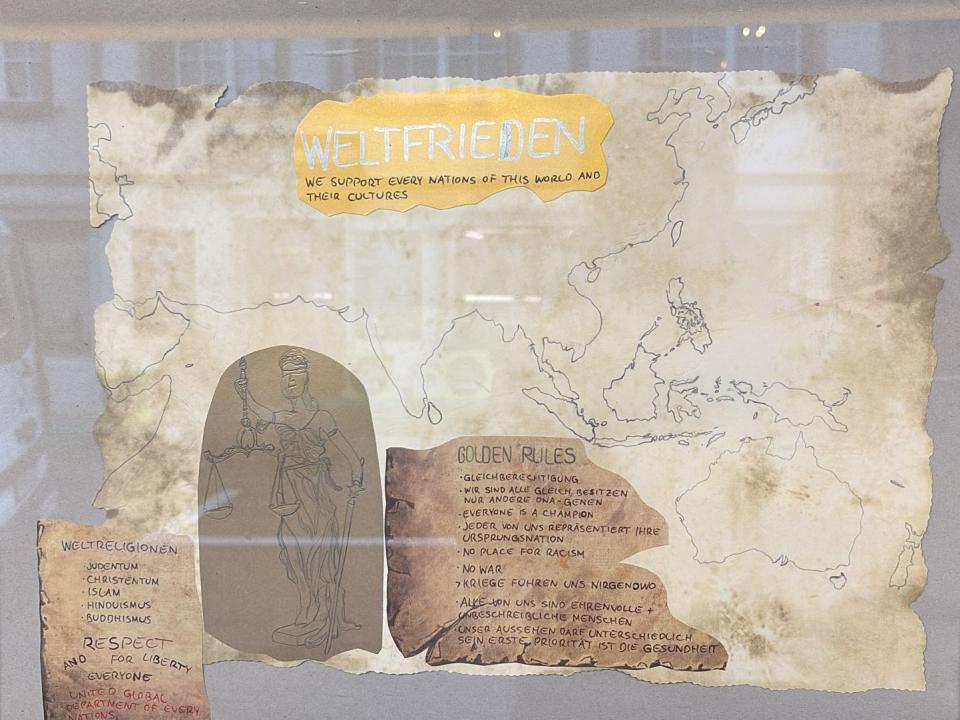 WELTFRIEDEN
WE SUPPORT EVERY NATIONS OF THIS WORLD AND
THEIR CULTURES
GOLDEN RULES
·GLEICHBERECHTIGUNG
·WIR SIND ALLE GLEICH, BESITZEN
NUR ANDERE DNA-GENEN
·EVERYONE IS A CHAMPION
·JEDER VON UNS REPRÄSENTIERT IHRE
URSPRUNGSNATION
·NO PLACE FOR RACISM
·NO WAR
→KRIEGE FÜHREN UNS NIRGENDWO
·ALLE VON UNS SIND EHRENVOLLE +
UNBESCHREIBLICHE MENSCHEN
·UNSER AUSSEHEN DARF UNTERSCHIEDLICH
SEIN ERSTE PRIORITÄT IST DIE GESUNDHEIT
WELTRELIGIONEN
·JUDENTUM
·CHRISTENTUM
·ISLAM
·HINDUISMUS
·BUDDHISMUS
RESPECT
AND FOR LIBERTY
EVERYONE
UNITED GLOBAL
DEPARTMENT OF EVERY
NATIONS